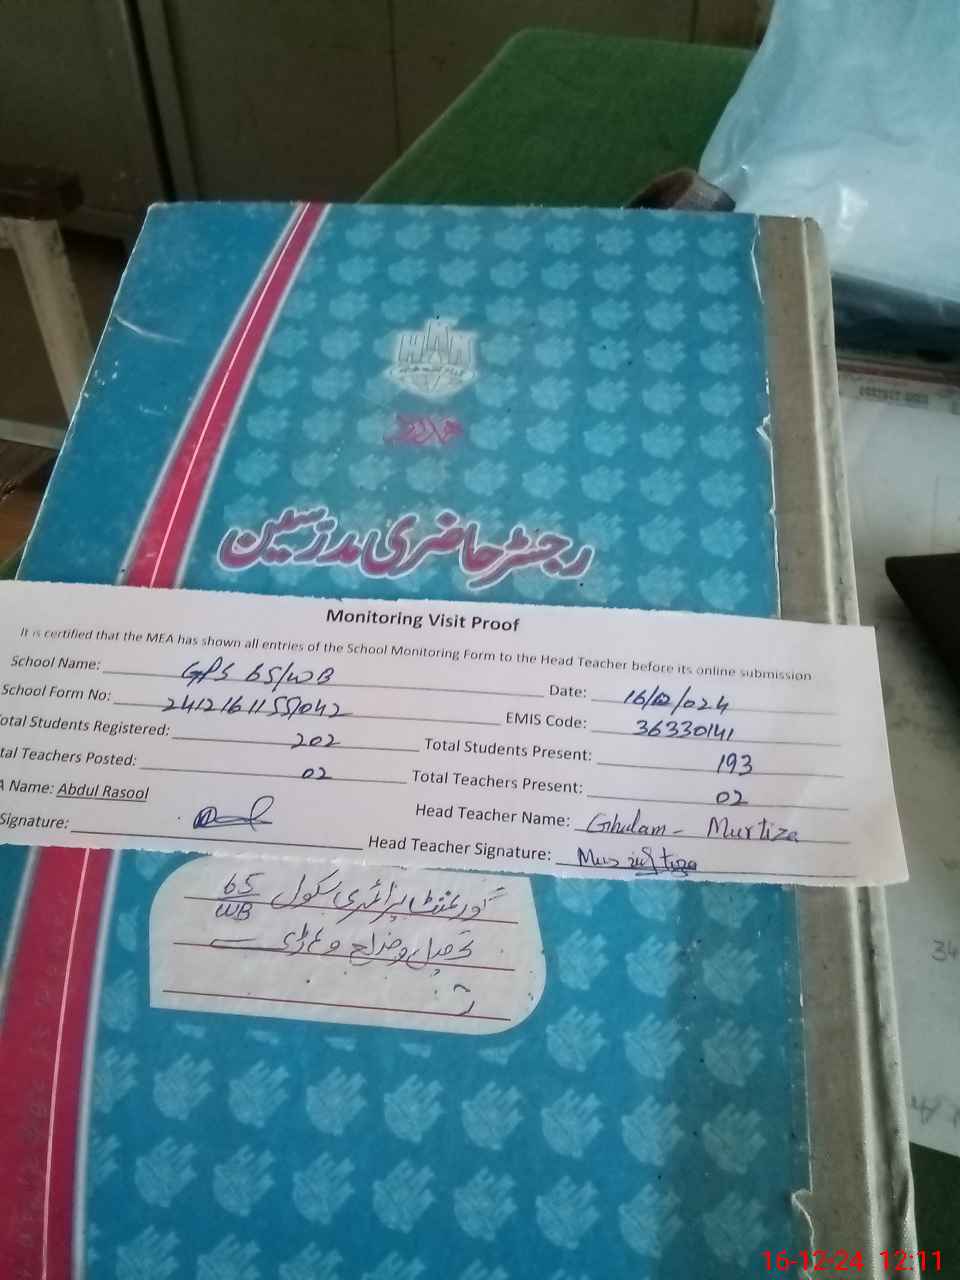 HAH
رجسٹر حاضری مدرسین
Monitoring Visit Proof
It is certified that the MEA has shown all entries of the School Monitoring Form to the Head Teacher before its online submission
School Name: GPS 65/WB Date: 16/12/024
School Form No: 2412161155042 EMIS Code: 36330141
otal Students Registered: 202 Total Students Present: 193
tal Teachers Posted: 02 Total Teachers Present: 02
A Name: Abdul Rasool Head Teacher Name: Ghulam - Murtiza
Signature: Head Teacher Signature:
گورنمنٹ پرائمری سکول 65/WB
تحصیل وضلع وہاڑی
34
16-12-24 12:11